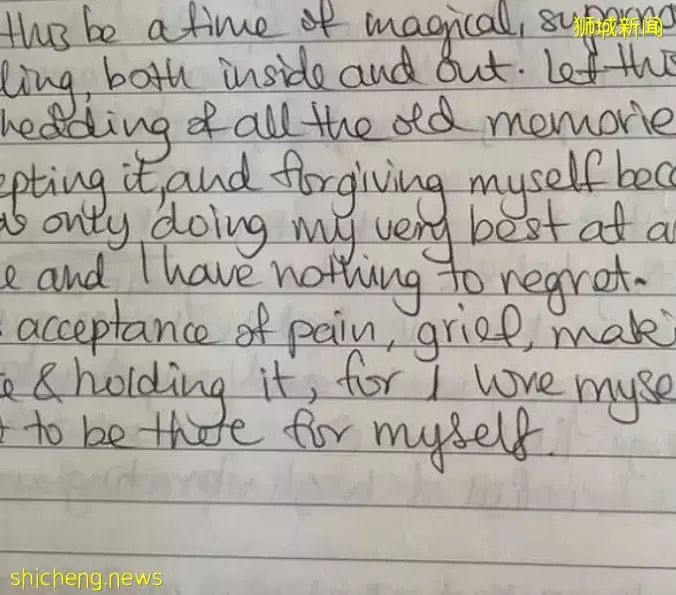 this be a time of magical, superna
狮城新闻
ling, both inside and out. Let this
hedding of all the old memorie
epting it, and forgiving myself beca
as only doing my very best at a
e and I have nothing to regret.
acceptance of pain, grief, maki
e & holding it, for I love myse
t to be there for myself.
shicheng.news